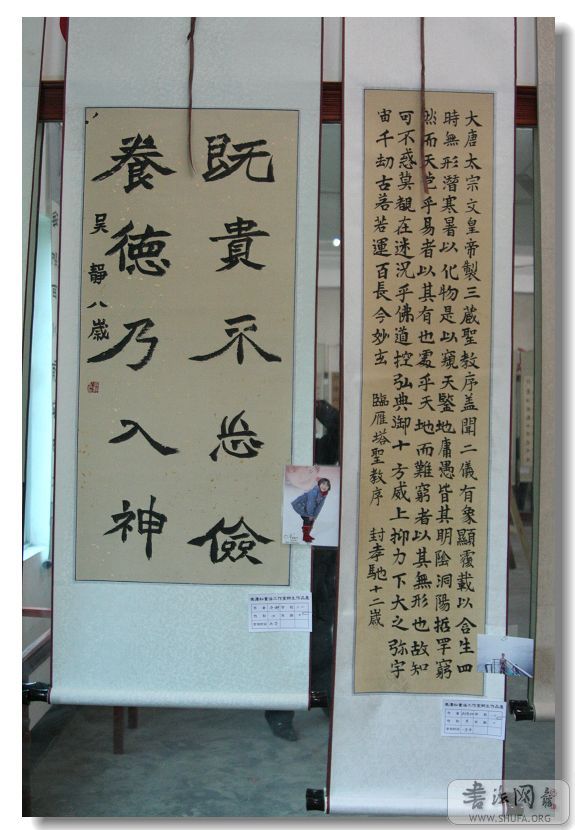 大唐太宗文皇帝製三蔵聖教序盖聞二儀有象顯覆載以含生四
時無形潛寒暑以化物是以窺天鑒地庸愚皆其明陰洞陽哲罕窮
然而天苞乎易者以其有也處乎天地而難窮者以其無形也故知
可不惑莫覩在迷況乎佛道控弘典御十方威上抑力下大之弥宇
宙千劫古若若運百長今妙玄 臨雁塔聖教序 封孝馳十二歲
既貴不忘儉
養德乃入神
吴靜八歲
书法网
WWW.SHUFA.ORG